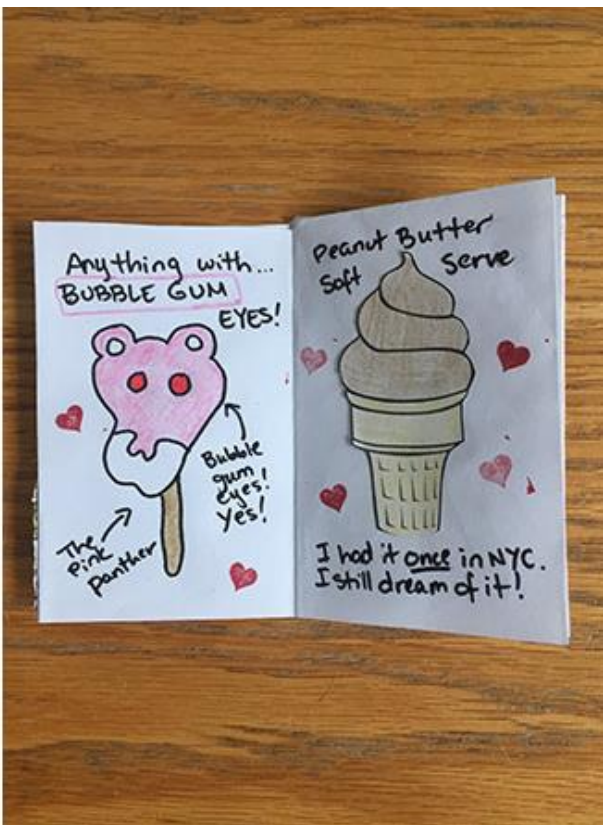 Anything with...
BUBBLE GUM
EYES!
Bubble
gum
eyes!
Yes!
The
Pink
Panther
Peanut Butter
Soft Serve
I had it once in NYC.
I still dream of it!